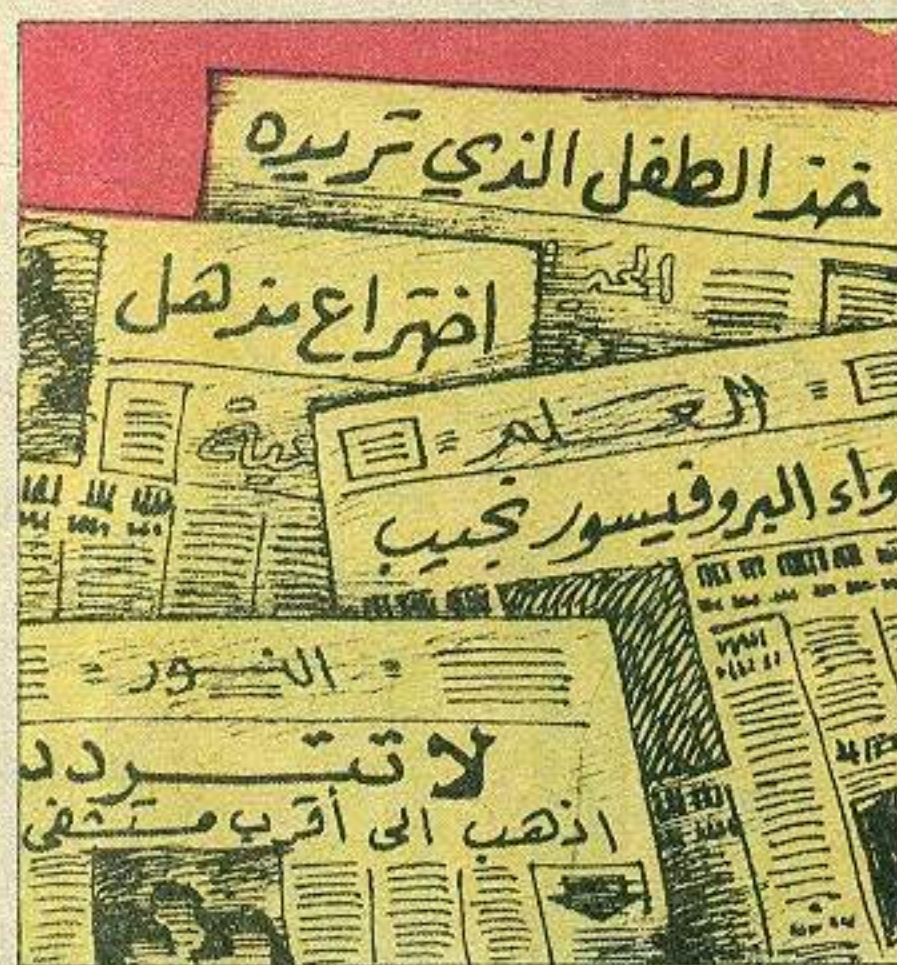 خذ الطفل الذي تريده
اختراع مذهل
العلم
البروفيسور نجيب
النور
لا تتردد
اذهب الى أقرب مستشفى